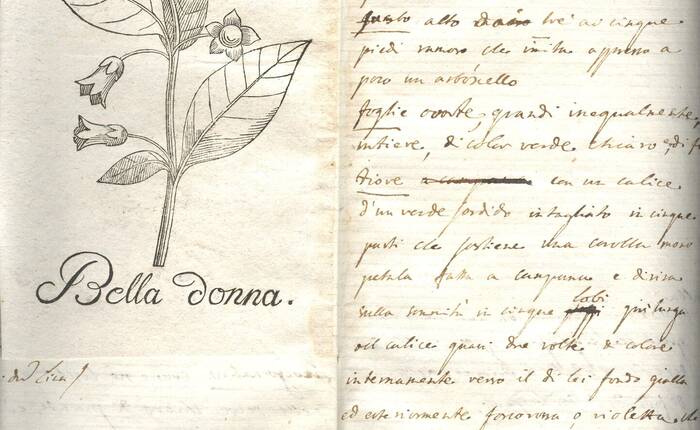 Bella donna.
fusto alto tre ai cinque
piedi ramoso che imita appresso a
poco un arboscello
foglie ovate, grandi inegualmente,
intiere, di color verde chiaro, e di
fiore con un calice
d'un verde sordido intagliato in cinque
parti che sostiene una corolla mono
petala fatta a campana e divisa
sulla sommità in cinque lobi più lunga
del calice quasi due volte di colore
internamente verso il di lei fondo giallo
ed esteriormente o violetta.